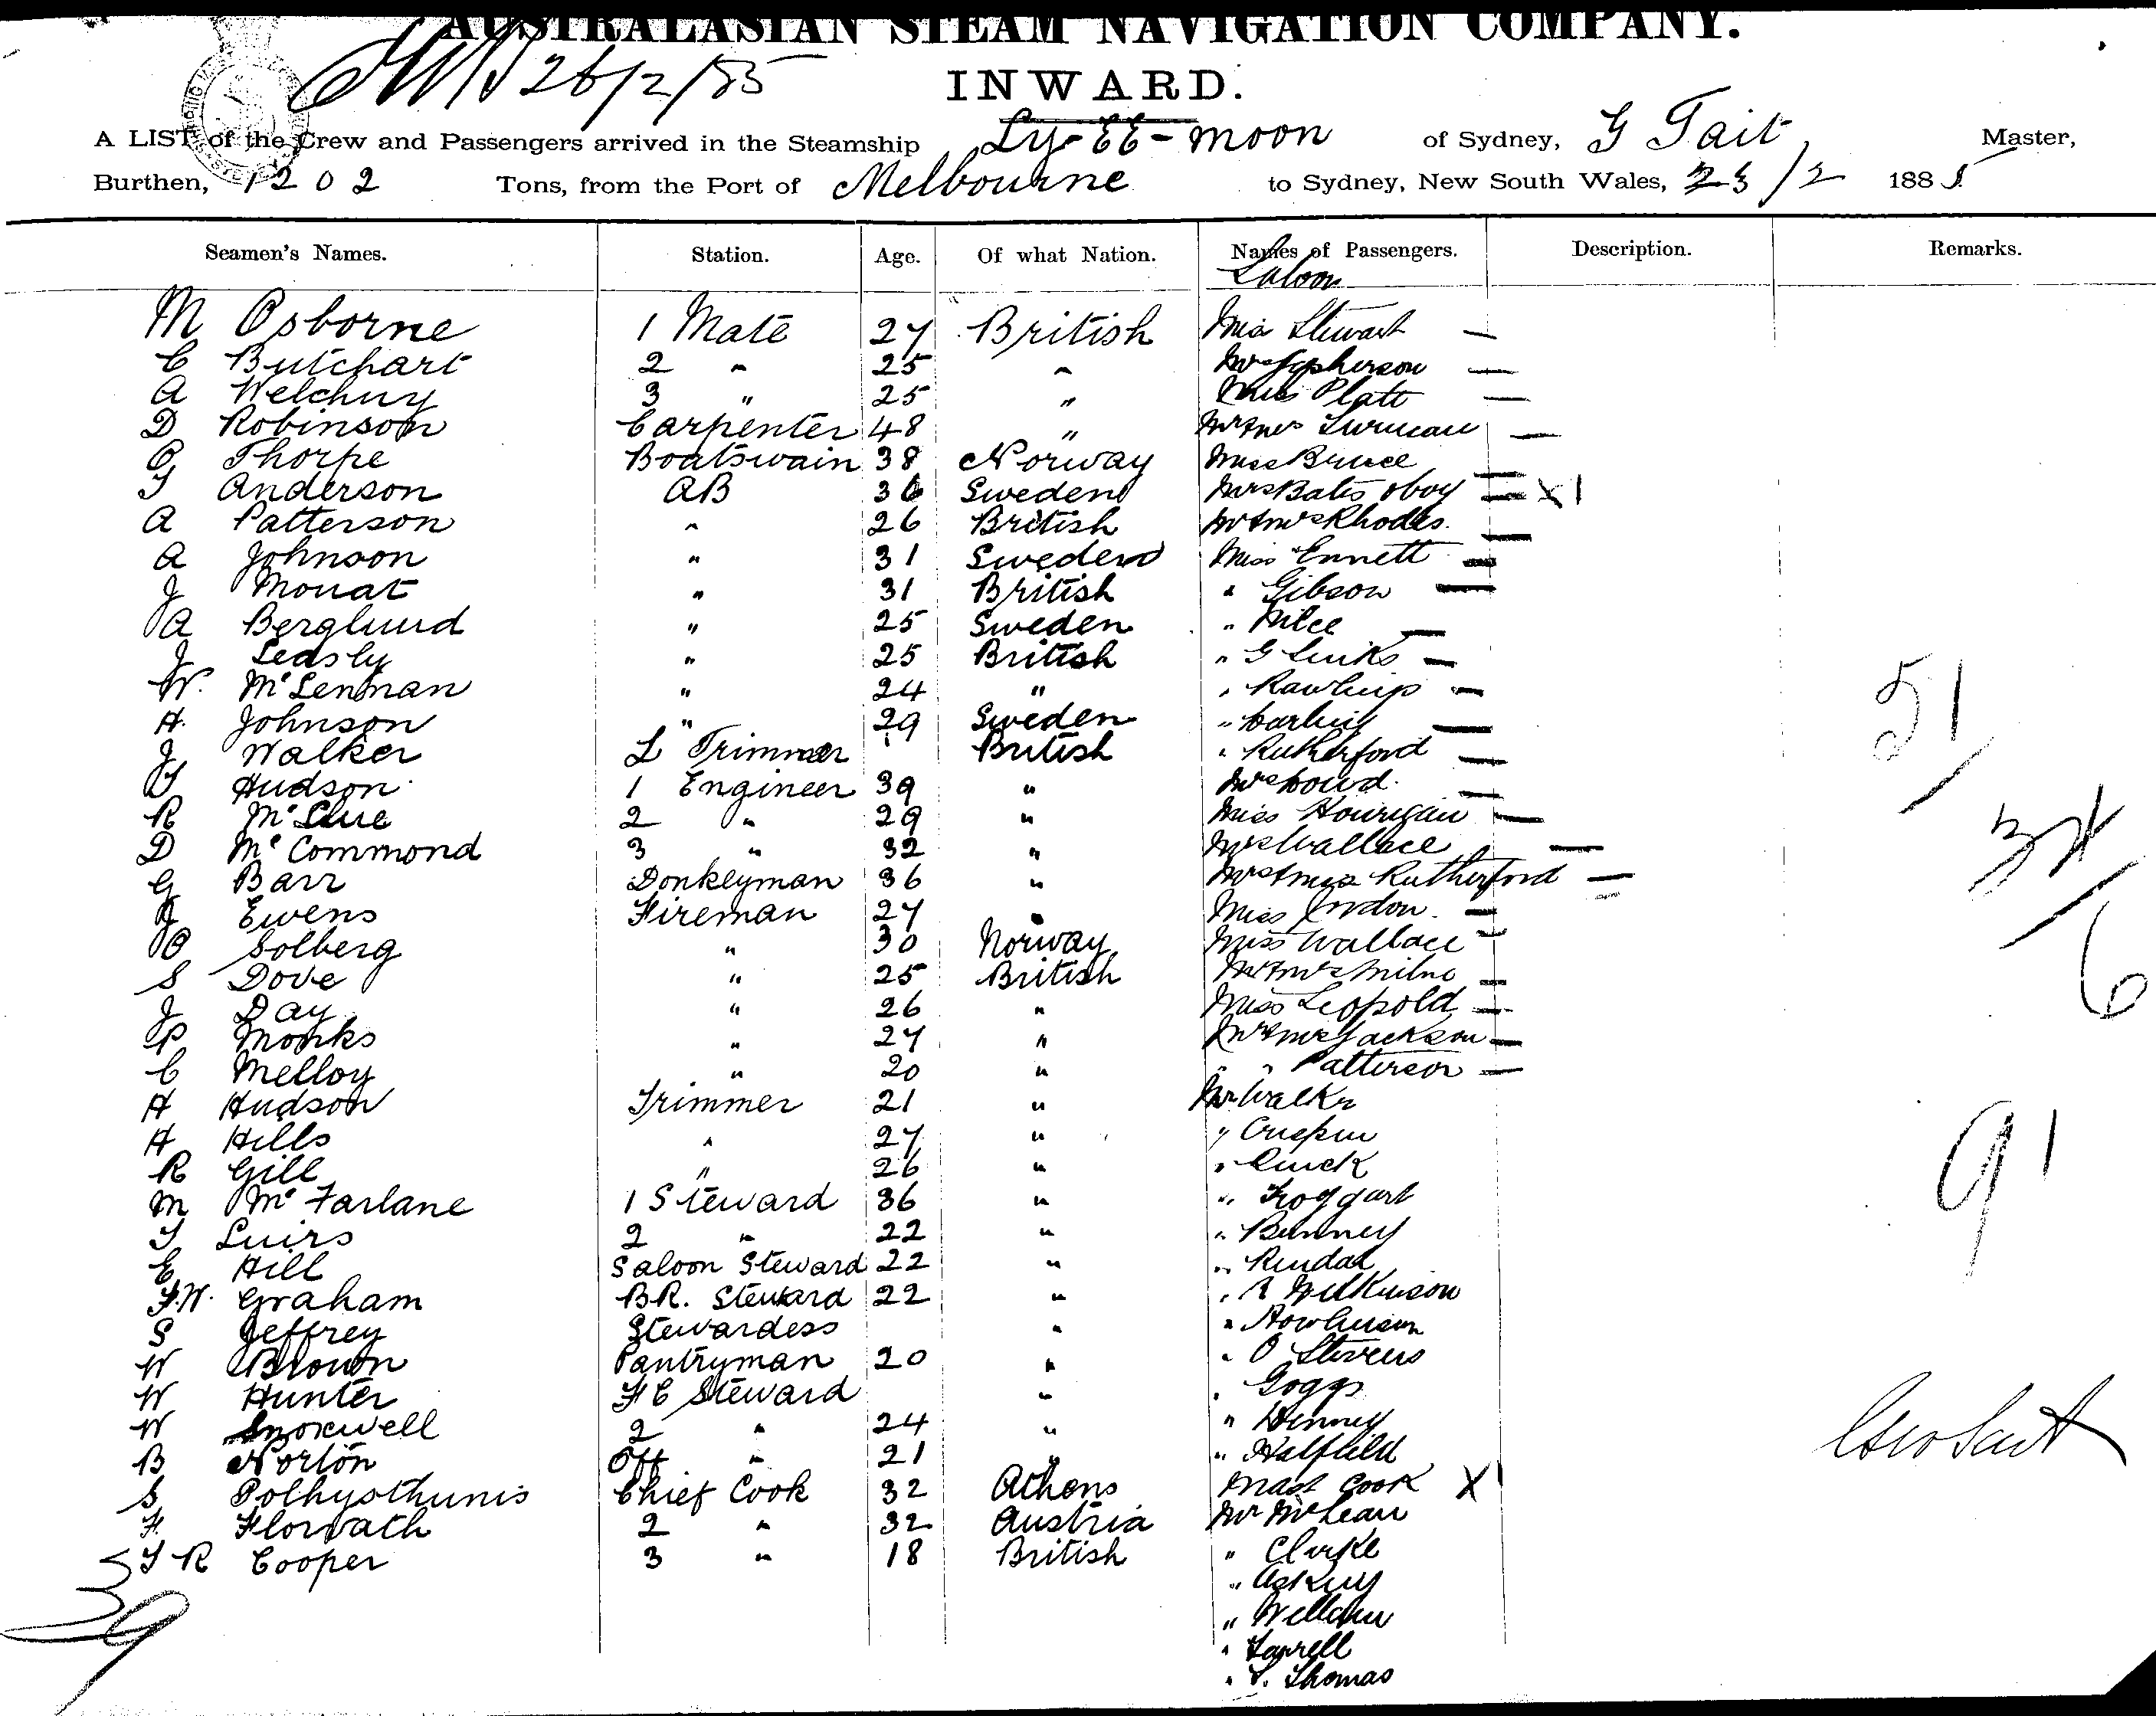 AUSTRALASIAN STEAM NAVIGATION COMPANY.
26/2/85
INWARD.
A LIST of the Crew and Passengers arrived in the Steamship Ly-EE-moon of Sydney, G Tait Master,
Burthen, 1202 Tons, from the Port of Melbourne to Sydney, New South Wales, 23/2 1885
Seamen's Names. Station. Age. Of what Nation. Names of Passengers. Description. Remarks.
Saloon
M Osborne 1 Mate 27 British Miss Stewart —
C Butchart 2 " 25 " Mrs —
A Welchuy 3 " 25 " Miss Platt —
D Robinson Carpenter 48 " Mr & Mrs —
O Thorpe Boatswain 38 Norway Miss Bruce —
J Anderson AB 36 Sweden Mrs Bates & boy — X 1
A Patterson " 26 British Mr & Mrs Rhodes. —
A Johnson " 31 Sweden Miss Ennett —
J Mouat " 31 British " Gibson —
A Berglund " 25 Sweden " —
J Leasly " 25 British " G —
W. McLennan " 24 " " —
H. Johnson " 29 Sweden " —
J Walker L Trimmer British " Rutherford —
T Hudson 1 Engineer 39 " Mrs —
R McClue 2 " 29 " Miss Hourigan —
D McCommond 3 " 32 " Mrs Wallace —
G Barr Donkeyman 36 " Mr & Miss Rutherford —
J Ewens Fireman 27 " Miss —
O Solberg " 30 Norway Miss Wallace —
S Dove " 25 British Mr & Mrs Milne —
J Day " 26 " Miss Leopold —
P Monks " 27 " Mr & Mrs Jackson —
C Melloy " 20 " " " Patterson —
H Hudson Trimmer 21 " Mr Walker
H Hills " 27 " " Crispin
R Gill " 26 " " Quick
M McFarlane 1 Steward 36 " " Froggart
T Luirs 2 " 22 " " Bunney
E Hill Saloon Steward 22 " "
F.W. Graham BR. Steward 22 " " Wilkinson
S Jeffrey Stewardess " "
W Brown Pantryman 20 " " O Stevens
W Hunter F C Steward " " Goggs
W Snoxwell 2 " 24 " " Denney
B Norton Off " 21 " " Halfield
S Polhyothunis Chief Cook 32 Athens Mast Cook X 1
F. Horvath 2 " 32 Austria Mr McLean
T R Cooper 3 " 18 British " Clarke
" Askey
"
" Farrell
" S. Thomas
39
51
34
6
91
Geo Tait